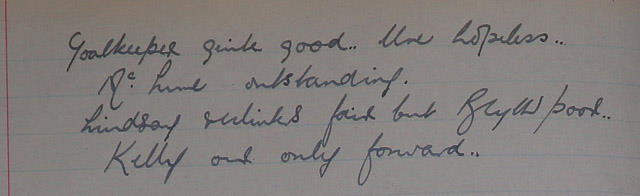 Goalkeeper quite good.. Ure hopeless..
Mc. Lure outstanding.
Lindsay fair but Blyth poor..
Kelly our only forward..